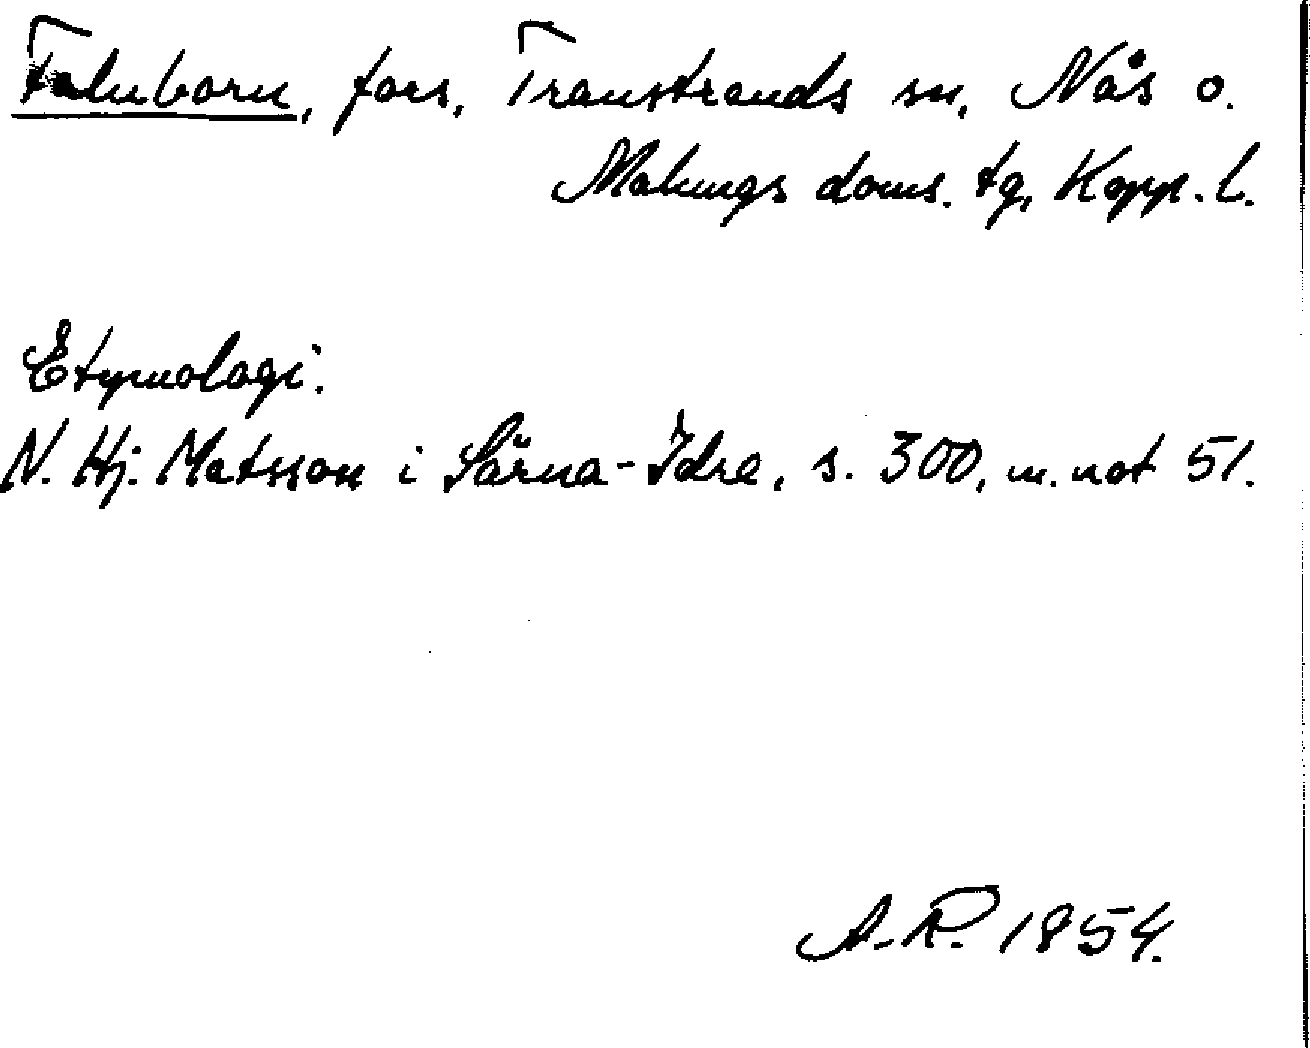 Faluborn, fors, Transtrands sn, Nås o.
Malungs doms. tg, Kopp. l.
Etymologi:
N. Hj. Matsson i Särna-Idre, s. 300, m. not 51.
A.R. 1954.